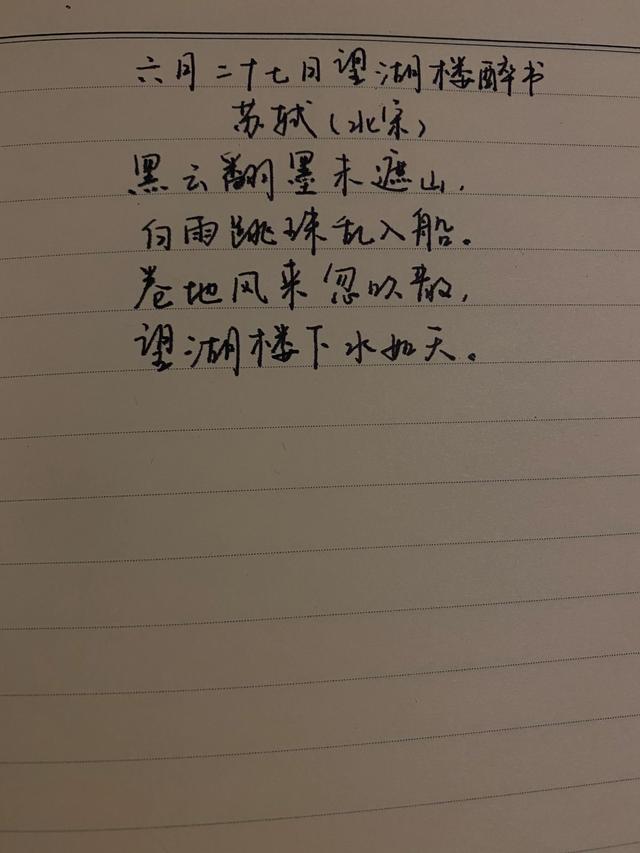 六月二十七日望湖楼醉书
苏轼(北宋)
黑云翻墨未遮山,
白雨跳珠乱入船。
卷地风来忽吹散,
望湖楼下水如天。